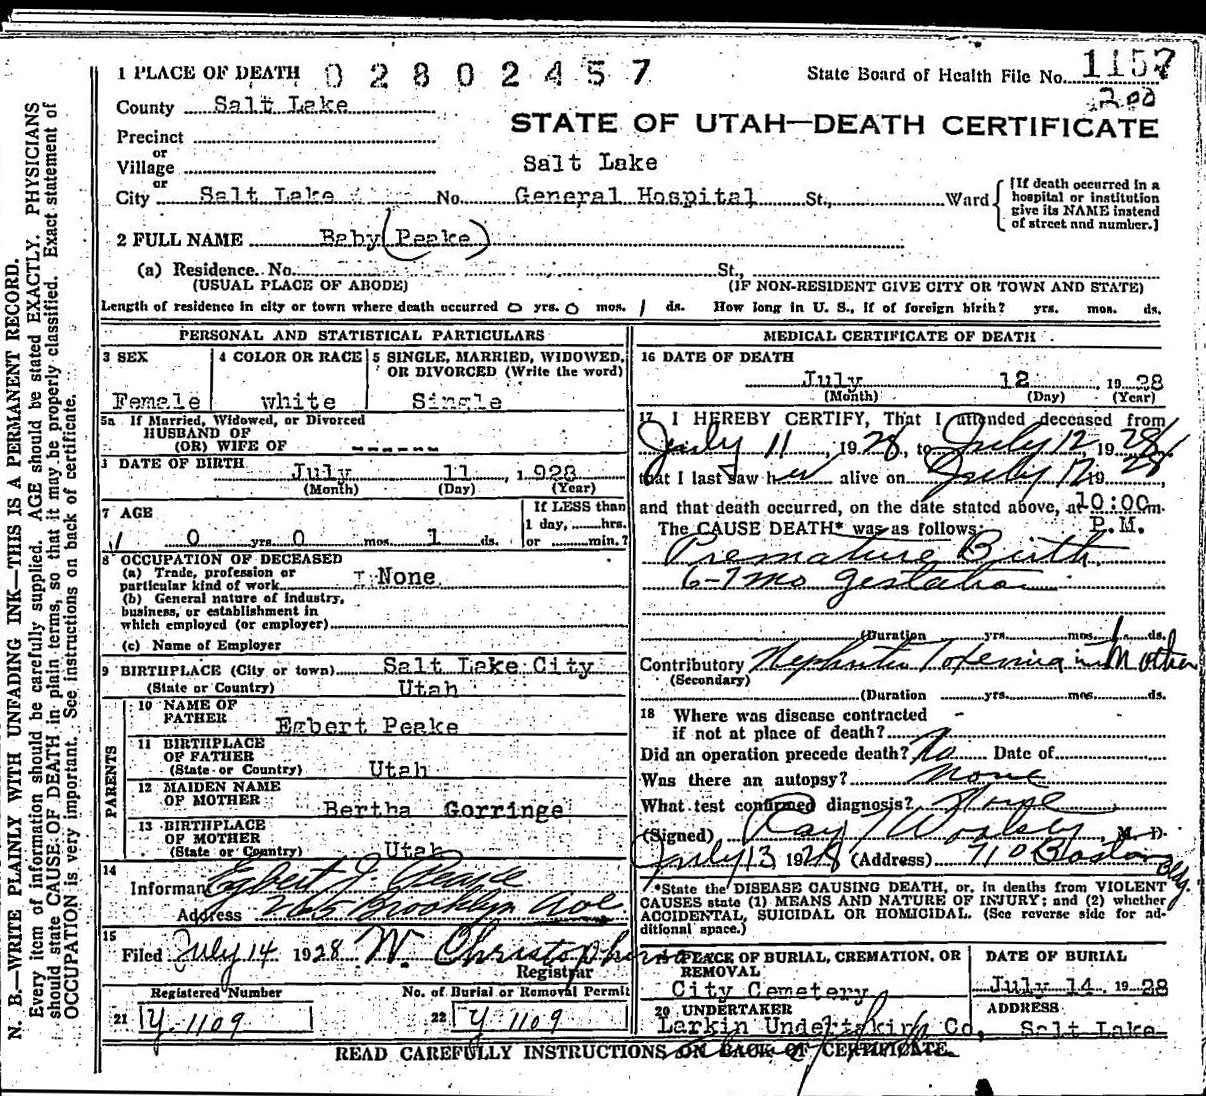 1 PLACE OF DEATH 02802457 State Board of Health File No. 1157
200
County Salt Lake
STATE OF UTAH—DEATH CERTIFICATE
Precinct
or
Village
Salt Lake
or
City Salt Lake No. General Hospital St., Ward
[If death occurred in a
hospital or institution
give its NAME instead
of street and number.]
2 FULL NAME Baby (Peake)
(a) Residence. No. St.,
(USUAL PLACE OF ABODE) (IF NON-RESIDENT GIVE CITY OR TOWN AND STATE)
Length of residence in city or town where death occurred 0 yrs. 0 mos. 1 ds. How long in U. S., if of foreign birth? yrs. mos. ds.
PERSONAL AND STATISTICAL PARTICULARS
3 SEX
Female
4 COLOR OR RACE
white
5 SINGLE, MARRIED, WIDOWED,
OR DIVORCED (Write the word)
Single
5a If Married, Widowed, or Divorced
HUSBAND OF
(OR) WIFE OF ------
DATE OF BIRTH July 11, 1928
(Month) (Day) (Year)
7 AGE
0 yrs. 0 mos. 1 ds.
If LESS than
1 day, hrs.
or min.?
8 OCCUPATION OF DECEASED
(a) Trade, profession or
particular kind of work None
(b) General nature of industry,
business, or establishment in
which employed (or employer)
(c) Name of Employer
9 BIRTHPLACE (City or town) Salt Lake City
(State or Country) Utah
PARENTS
10 NAME OF
FATHER Egbert Peake
11 BIRTHPLACE
OF FATHER
(State or Country) Utah
12 MAIDEN NAME
OF MOTHER Bertha Gorringe
13 BIRTHPLACE
OF MOTHER
(State or Country) Utah
14
Informant Egbert J. Peake
Address 265 Brooklyn Ave
15
Filed July 14 1928 W. Christopherson
Registrar
Registered Number
21 Y-1109
No. of Burial or Removal Permit
22 Y 1109
MEDICAL CERTIFICATE OF DEATH
16 DATE OF DEATH
July 12, 1928
(Month) (Day) (Year)
17 I HEREBY CERTIFY, That I attended deceased from
July 11, 1928, to July 12, 1928,
that I last saw her alive on July 12 1928,
and that death occurred, on the date stated above, at 10:00 m.
P.M.
The CAUSE DEATH* was as follows:
Premature Birth
6-7 mo gestation
(Duration yrs. mos. 1 ds.
Contributory Nephritic Toxemia in Mother
(Secondary)
(Duration yrs. mos. ds.
18 Where was disease contracted
if not at place of death?
Did an operation precede death? No Date of
Was there an autopsy? None
What test confirmed diagnosis? None
(Signed) Ray T Woolsey, M. D.
July 13 1928 (Address) 710 Boston Blg.
*State the DISEASE CAUSING DEATH, or, in deaths from VIOLENT
CAUSES state (1) MEANS AND NATURE OF INJURY; and (2) whether
ACCIDENTAL, SUICIDAL OR HOMICIDAL. (See reverse side for ad-
ditional space.)
19 PLACE OF BURIAL, CREMATION, OR
REMOVAL
City Cemetery
DATE OF BURIAL
July 14 1928
20 UNDERTAKER
Larkin Undertaking Co,
ADDRESS
Salt Lake
READ CAREFULLY INSTRUCTIONS ON BACK OF CERTIFICATE.
N. B.—WRITE PLAINLY WITH UNFADING INK—THIS IS A PERMANENT RECORD.
Every item of information should be carefully supplied. AGE should be stated EXACTLY. PHYSICIANS
should state CAUSE OF DEATH in plain terms, so that it may be properly classified. Exact statement of
OCCUPATION is very important. See instructions on back of certificate.